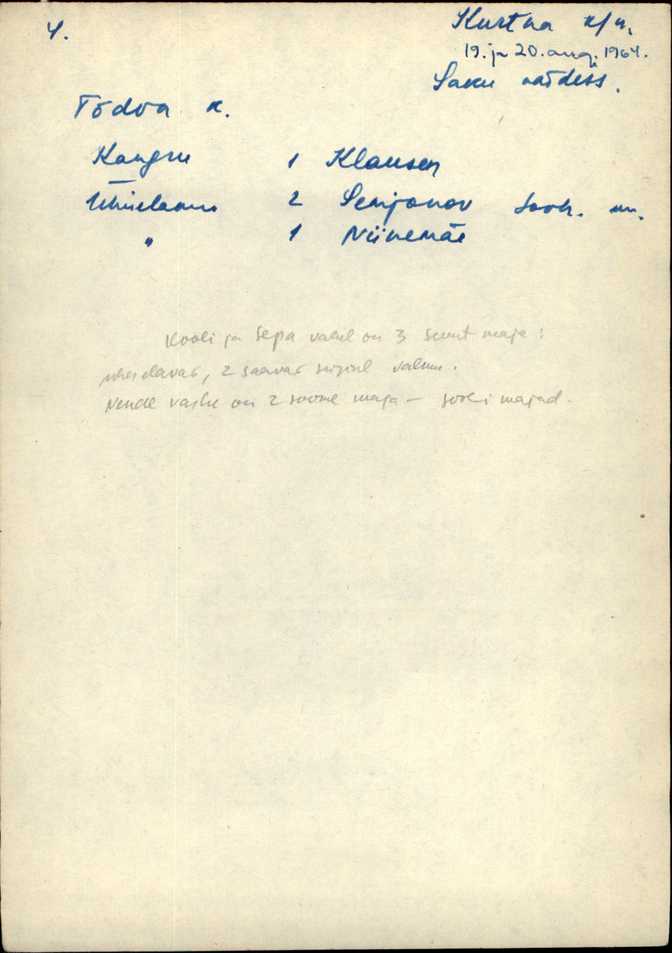 4.
Kurtna k/n.
19. ja 20. aug. 1964.
Saku
Tõdva k.
Kangru 1 Klausen
2 Semjonov sovh.
" 1 Niinemäe
Kooli ja Sepa vahel on 3 suurt maja:
ühes elavad, 2 saavad sügisel valmis.
Nende vastu on 2 soome maja – sovh. majad.